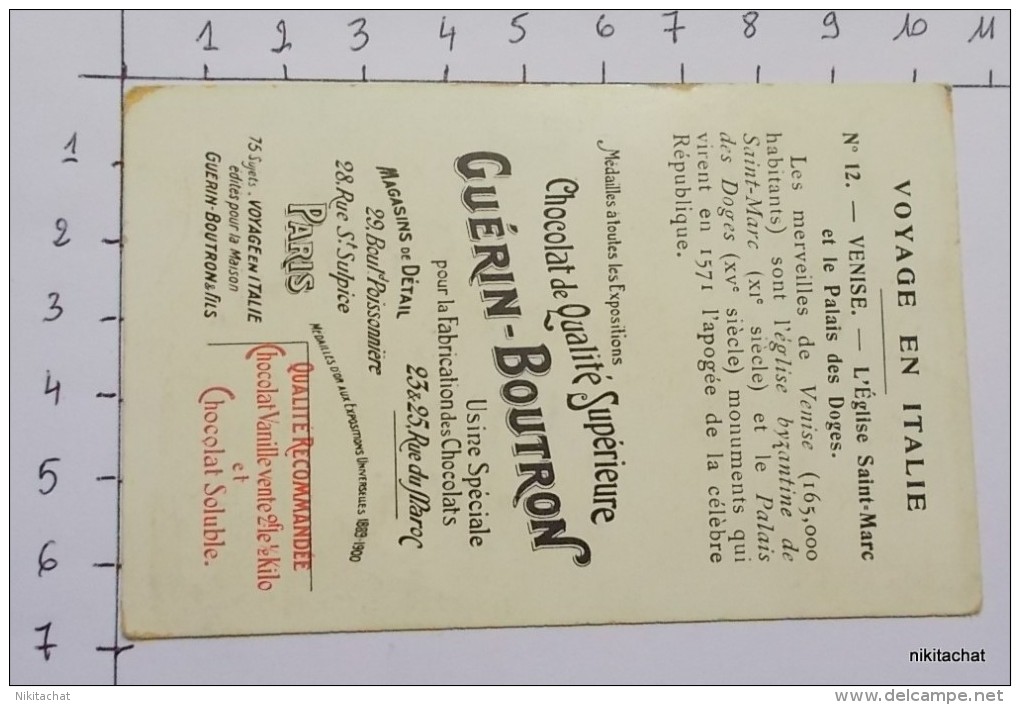 1 2 3 4 5 6 7 8 9 10 11
1
2
3
4
5
6
7
VOYAGE EN ITALIE
N° 12. — VENISE. — L'Église Saint-Marc
et le Palais des Doges.
Les merveilles de Venise (165,000
habitants) sont l'église byzantine de
Saint-Marc (XIe siècle) et le Palais
des Doges (XVe siècle) monuments qui
virent en 1571 l'apogée de la célèbre
République.
Médailles à toutes les Expositions
Chocolat de Qualité Supérieure
GUÉRIN-BOUTRON
Usine Spéciale
pour la Fabrication des Chocolats
23 & 25, Rue du Maroc
MAGASINS DE DÉTAIL
29, Bould Poissonnière
28, Rue St Sulpice
PARIS
MÉDAILLES D'OR AUX EXPOSITIONS UNIVERSELLES 1889-1900
75 Sujets. VOYAGE EN ITALIE
édités pour la Maison
GUERIN-BOUTRON & FILS
QUALITÉ RECOMMANDÉE
Chocolat Vanille vente 2f le ½ Kilo
et
Chocolat Soluble.
nikitachat
Nikitachat
www.delcampe.net